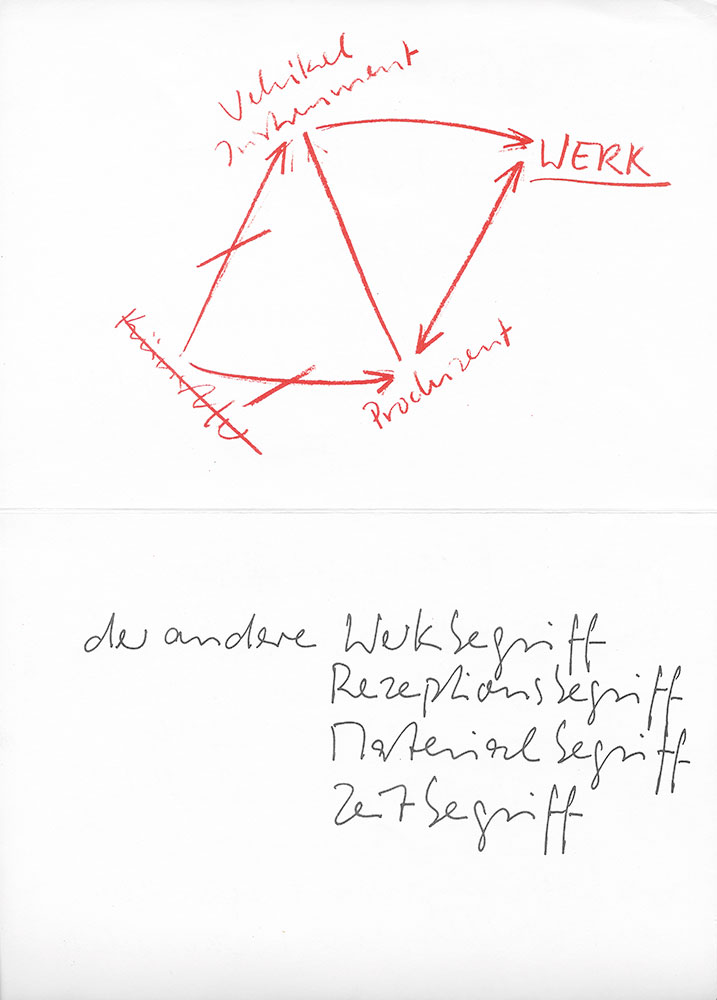 Vehikel
Instrument
WERK
Künstler
Produzent
der andere Werkbegriff
Rezeptionsbegriff
Materialbegriff
Zeitbegriff